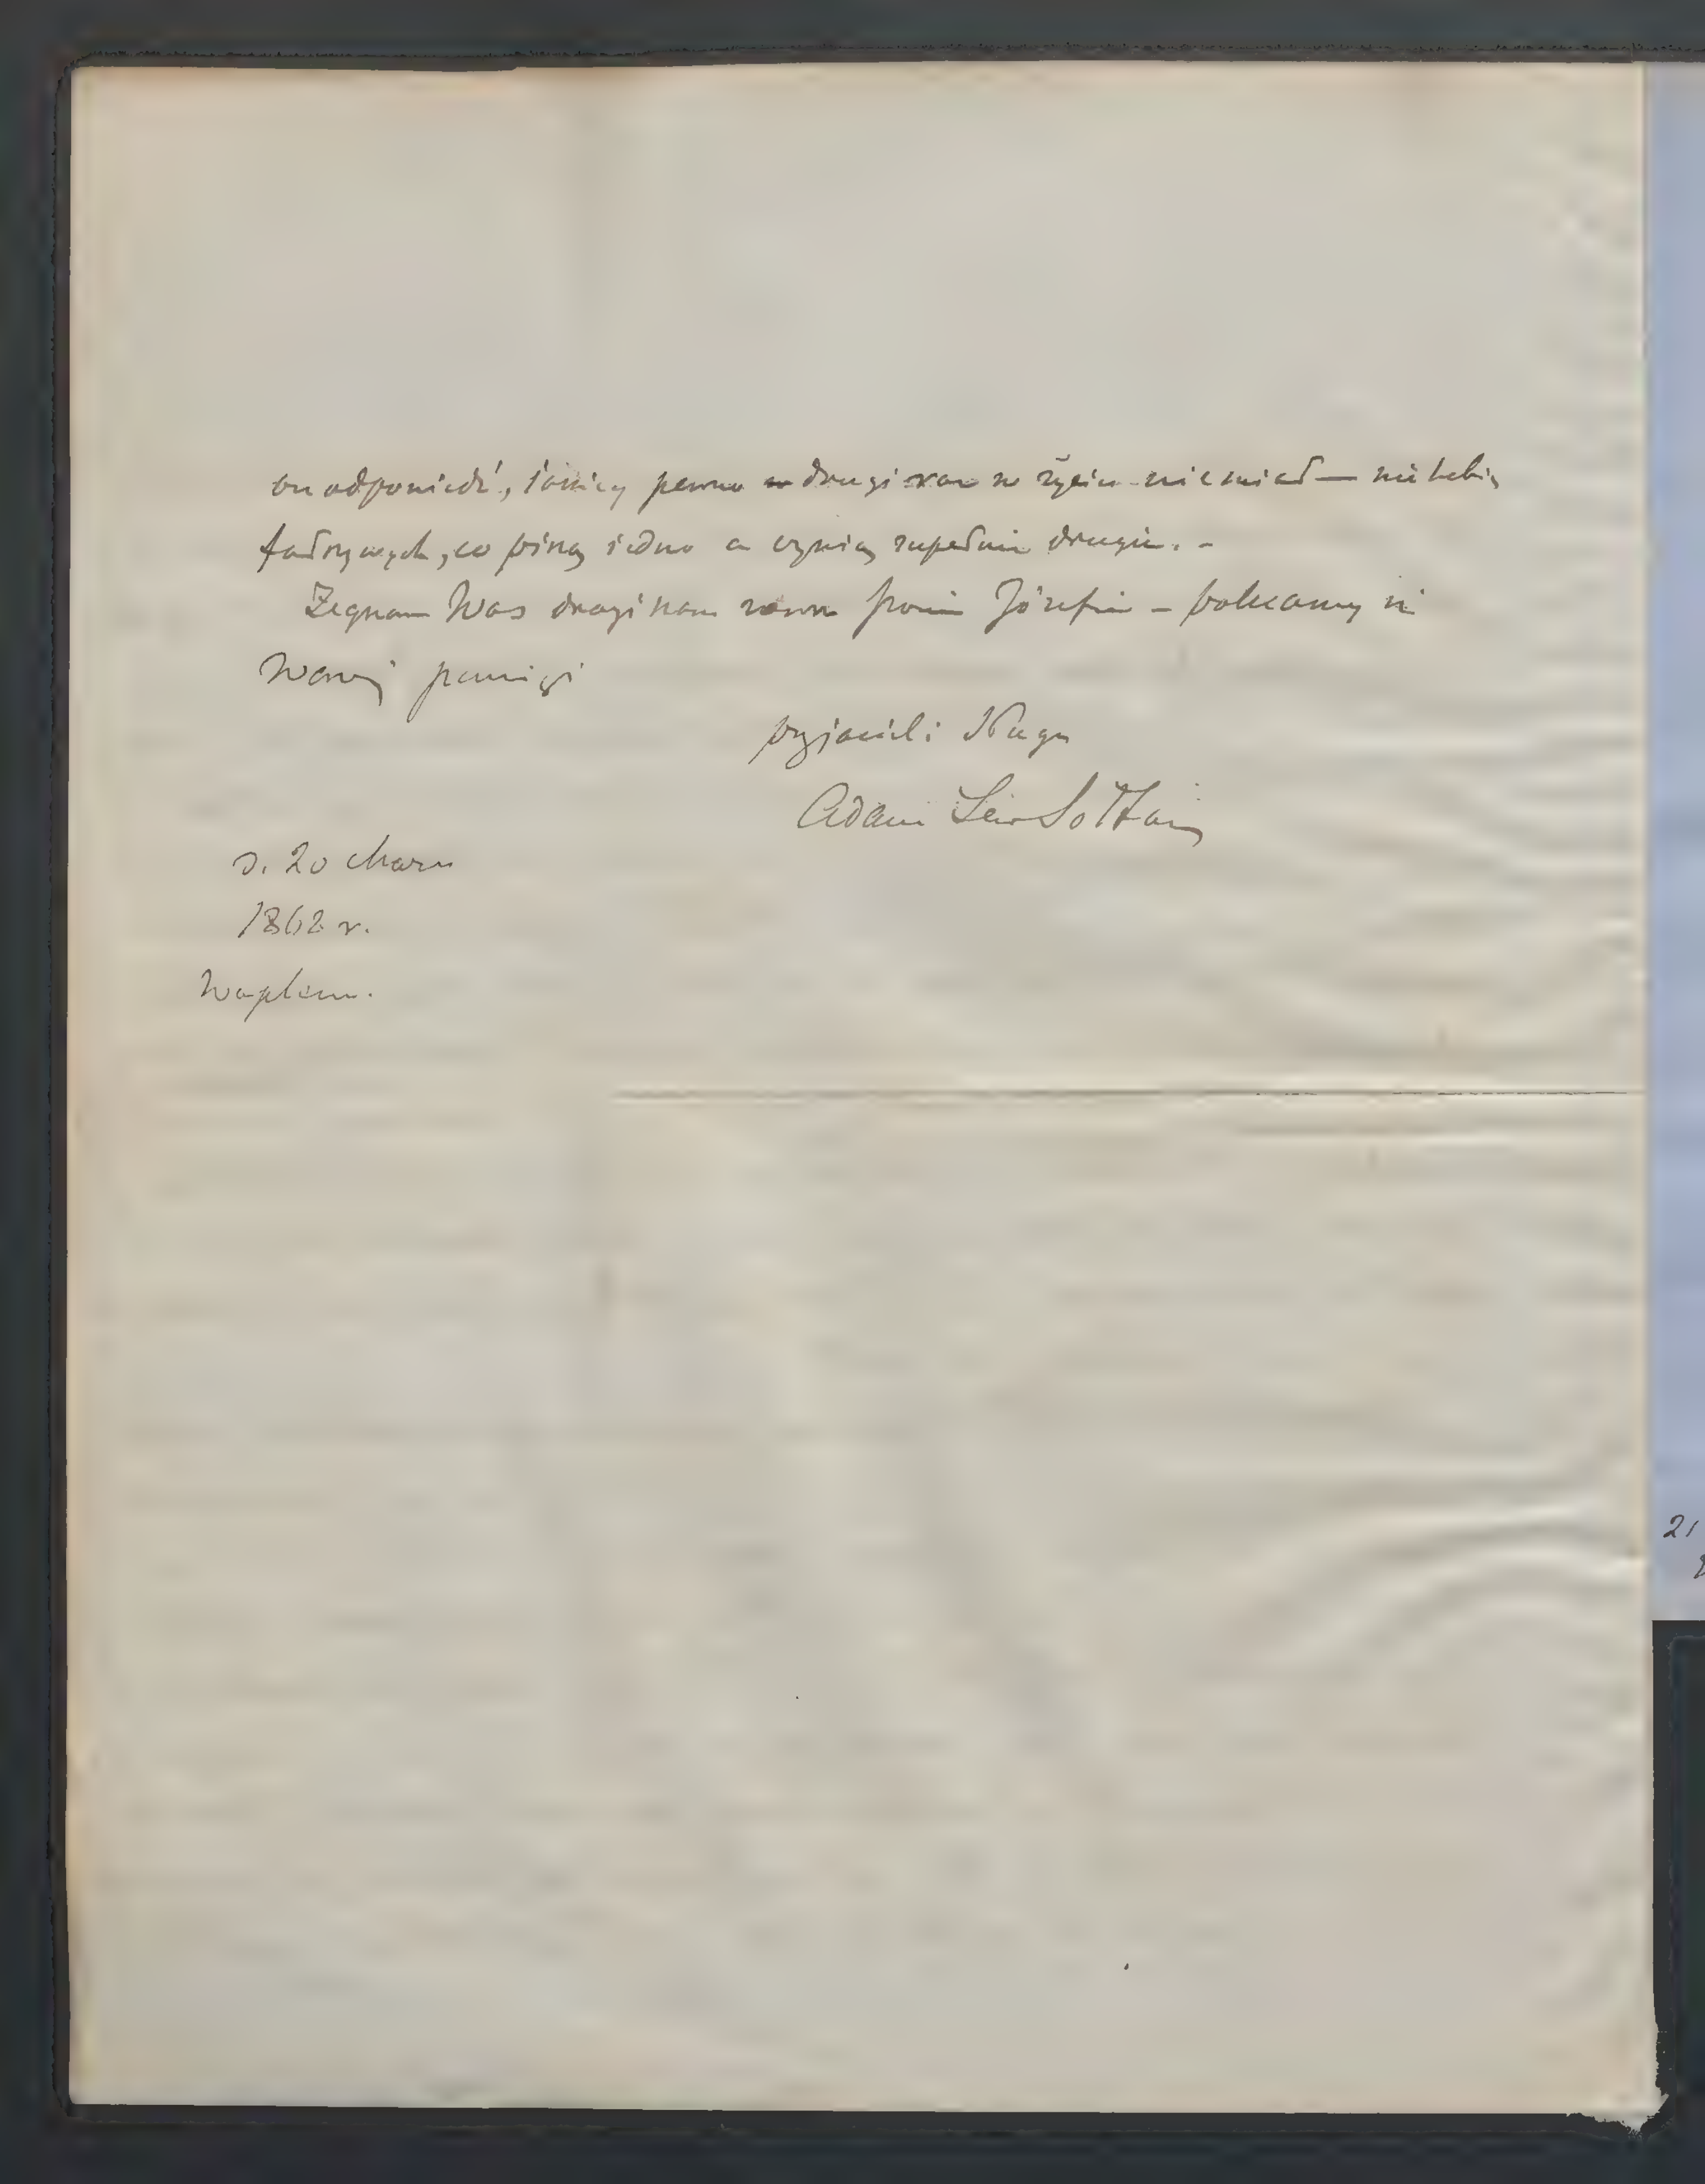 on odpowiedź, jakiéj pewno w drugi raz w życiu nie miał — nie lubię
fałszywych, co piszą jedno a czynią zupełnie drugie. –
Żegnam Was drogi nam zawsze Panie Józefie – polecamy się
Waszéj pamięci
przyjaciel i sługa
Adam Lew Sołtan
d. 20 Marca
1862 r.
Waplewo.
21